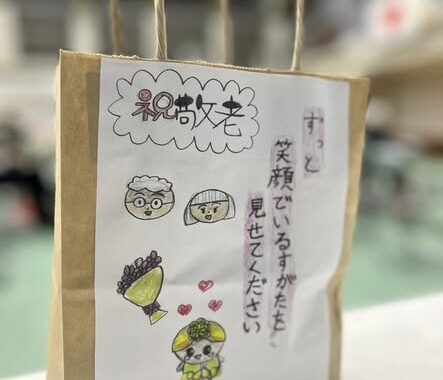 祝敬老
ずっと
笑顔でいるすがたを、
見せてください